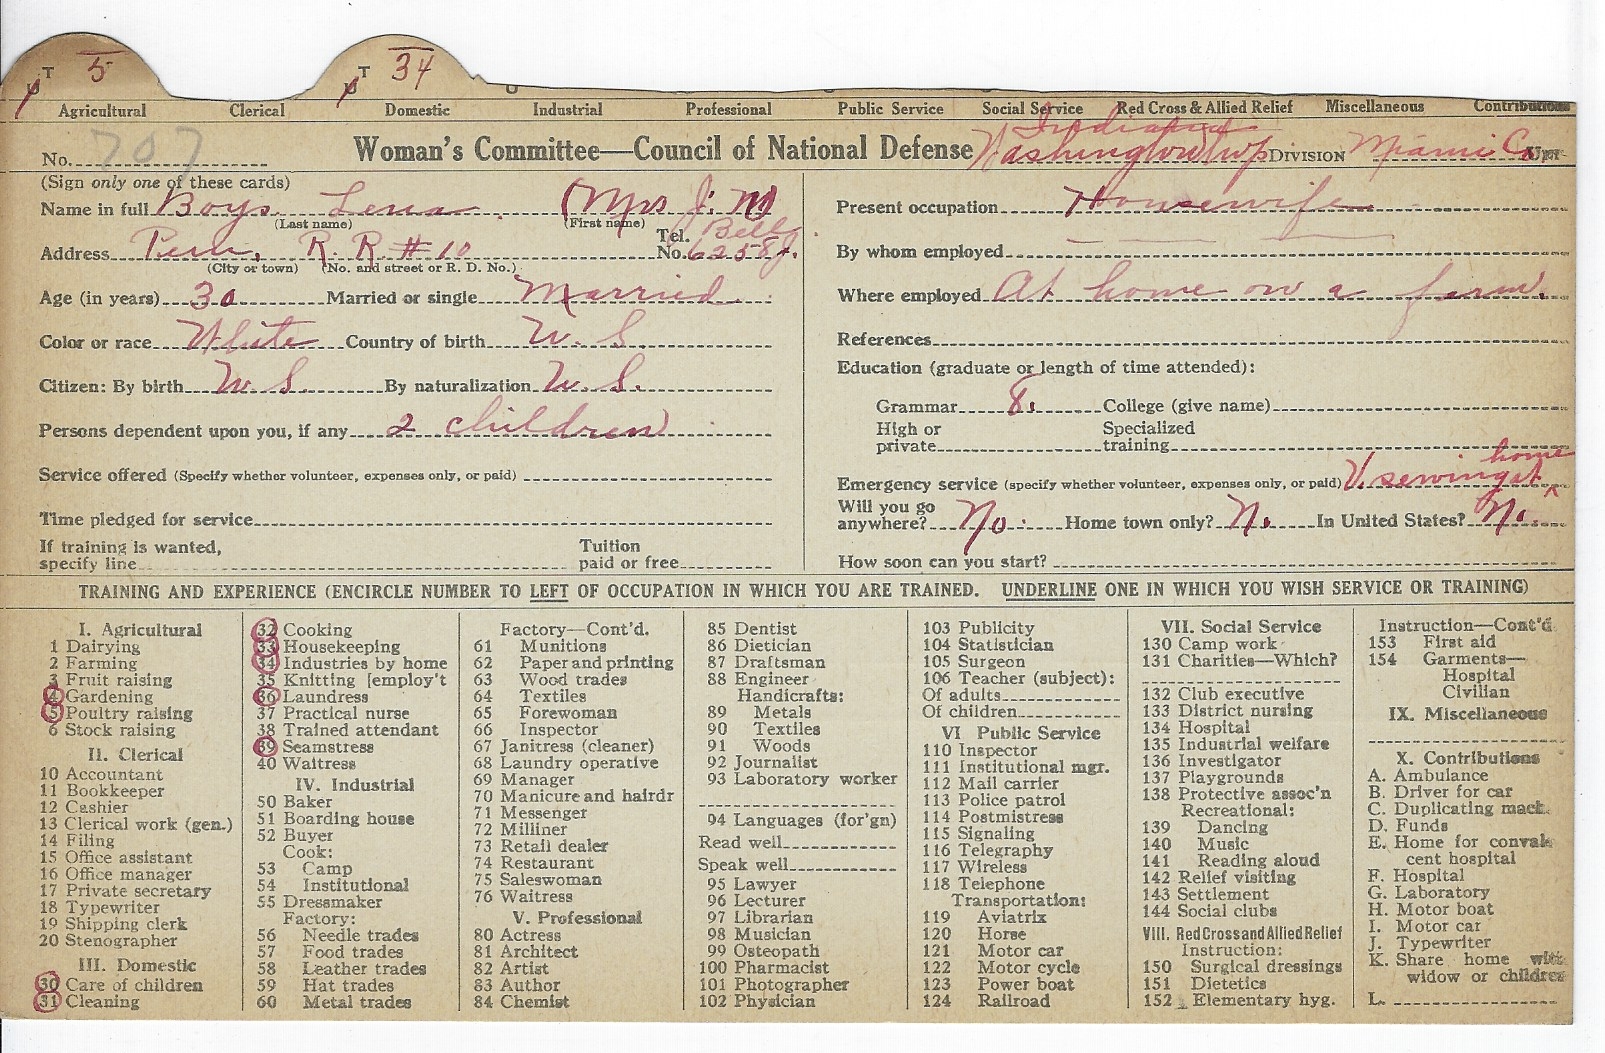 T 5 T 34
Agricultural Clerical Domestic Industrial Professional Public Service Social Service Red Cross & Allied Relief Miscellaneous Contributions
Indiana
No. 707 Woman's Committee—Council of National Defense Washington twp DIVISION Miami Co.
(Sign only one of these cards)
Name in full Boys Lena (Mrs J. M)
(Last name) (First name)
Address Peru, R. R. # 10 Tel. No. Bell 6258J.
(City or town) (No. and street or R. D. No.)
Age (in years) 30 Married or single Married
Color or race White Country of birth U. S.
Citizen: By birth U. S. By naturalization U. S.
Persons dependent upon you, if any 2 children
Service offered (Specify whether volunteer, expenses only, or paid)
Time pledged for service
If training is wanted, specify line Tuition paid or free
Present occupation Housewife
By whom employed
Where employed At home on a farm.
References
Education (graduate or length of time attended):
Grammar 8. College (give name)
High or private Specialized training
Emergency service (specify whether volunteer, expenses only, or paid) V. sewing at home
Will you go anywhere? No. Home town only? N. In United States? N.
How soon can you start?
TRAINING AND EXPERIENCE (ENCIRCLE NUMBER TO LEFT OF OCCUPATION IN WHICH YOU ARE TRAINED. UNDERLINE ONE IN WHICH YOU WISH SERVICE OR TRAINING)
I. Agricultural
1 Dairying
2 Farming
3 Fruit raising
4 Gardening
5 Poultry raising
6 Stock raising
II. Clerical
10 Accountant
11 Bookkeeper
12 Cashier
13 Clerical work (gen.)
14 Filing
15 Office assistant
16 Office manager
17 Private secretary
18 Typewriter
19 Shipping clerk
20 Stenographer
III. Domestic
30 Care of children
31 Cleaning
32 Cooking
33 Housekeeping
34 Industries by home
35 Knitting [employ't
36 Laundress
37 Practical nurse
38 Trained attendant
39 Seamstress
40 Waitress
IV. Industrial
50 Baker
51 Boarding house
52 Buyer
Cook:
53 Camp
54 Institutional
55 Dressmaker
Factory:
56 Needle trades
57 Food trades
58 Leather trades
59 Hat trades
60 Metal trades
Factory—Cont'd.
61 Munitions
62 Paper and printing
63 Wood trades
64 Textiles
65 Forewoman
66 Inspector
67 Janitress (cleaner)
68 Laundry operative
69 Manager
70 Manicure and hairdr
71 Messenger
72 Milliner
73 Retail dealer
74 Restaurant
75 Saleswoman
76 Waitress
V. Professional
80 Actress
81 Architect
82 Artist
83 Author
84 Chemist
85 Dentist
86 Dietician
87 Draftsman
88 Engineer
Handicrafts:
89 Metals
90 Textiles
91 Woods
92 Journalist
93 Laboratory worker
94 Languages (for'gn)
Read well
Speak well
95 Lawyer
96 Lecturer
97 Librarian
98 Musician
99 Osteopath
100 Pharmacist
101 Photographer
102 Physician
103 Publicity
104 Statistician
105 Surgeon
106 Teacher (subject):
Of adults
Of children
VI Public Service
110 Inspector
111 Institutional mgr.
112 Mail carrier
113 Police patrol
114 Postmistress
115 Signaling
116 Telegraphy
117 Wireless
118 Telephone
Transportation:
119 Aviatrix
120 Horse
121 Motor car
122 Motor cycle
123 Power boat
124 Railroad
VII. Social Service
130 Camp work
131 Charities—Which?
132 Club executive
133 District nursing
134 Hospital
135 Industrial welfare
136 Investigator
137 Playgrounds
138 Protective assoc'n
Recreational:
139 Dancing
140 Music
141 Reading aloud
142 Relief visiting
143 Settlement
144 Social clubs
VIII. Red Cross and Allied Relief
Instruction:
150 Surgical dressings
151 Dietetics
152 Elementary hyg.
Instruction—Cont'd
153 First aid
154 Garments—
Hospital
Civilian
IX. Miscellaneous
X. Contributions
A. Ambulance
B. Driver for car
C. Duplicating mach.
D. Funds
E. Home for convales
cent hospital
F. Hospital
G. Laboratory
H. Motor boat
I. Motor car
J. Typewriter
K. Share home with
widow or children
L.